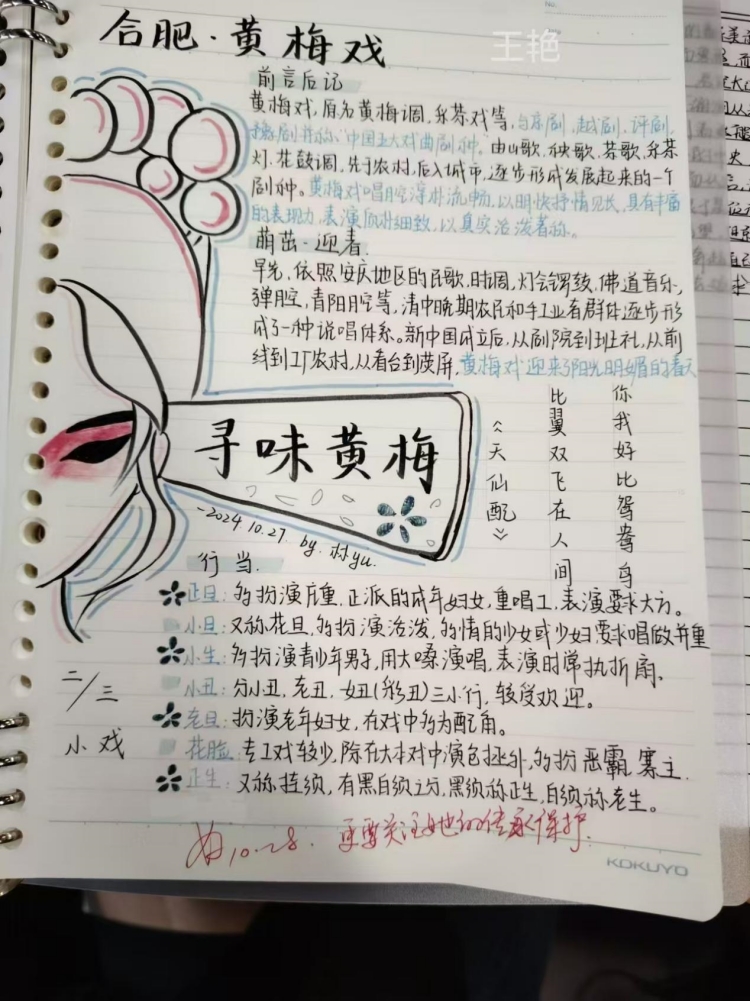 合肥·黄梅戏
王艳
前言后记
黄梅戏,原名黄梅调,采茶戏等,与京剧,越剧,评剧,
豫剧并称"中国五大戏曲剧种"。由山歌、秧歌、茶歌、采茶
灯、花鼓调,先于农村,后入城市,逐步形成发展起来的一个
剧种。黄梅戏唱腔淳朴流畅,以明快抒情见长,具有丰富
的表现力,表演质朴细致,以真实活泼著称。
萌茁·迎春
早先,依照安庆地区的民歌,时调,灯会锣鼓,佛道音乐,
弹腔,青阳腔等,清中晚期农民和手工业者群体逐步形
成了一种说唱体系。新中国成立后,从剧院到班社,从前
线到工厂农村,从看台到荧屏,黄梅戏迎来了阳光明媚的春天
寻味黄梅
-2024 10.27 by.
你我好比鸳鸯鸟
比翼双飞在人间
《天仙配》
行当
正旦:多扮演庄重,正派的成年妇女,重唱工,表演要求大方。
小旦:又称花旦,多扮演活泼,多情的少女或少妇要求唱做并重
小生:多扮演青少年男子,用大嗓演唱,表演时常执折扇。
小丑:分小丑,老丑,女丑(彩丑)三小行,较受欢迎。
老旦:扮演老年妇女,在戏中多为配角。
花脸:专工戏较少,除在大本戏中演包拯外,多扮恶霸,寨主.
正生:又称挂须,有黑白须之分,黑须称正生,白须称老生。
二/三
小戏
10.28. 更要关注她的传承保护.
KOKUYO